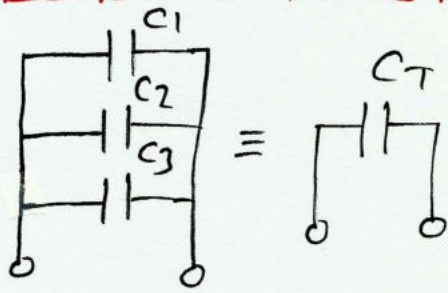 C1
C2
C3
≡
CT